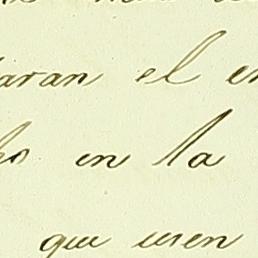 aran el en
ho en la
que usen